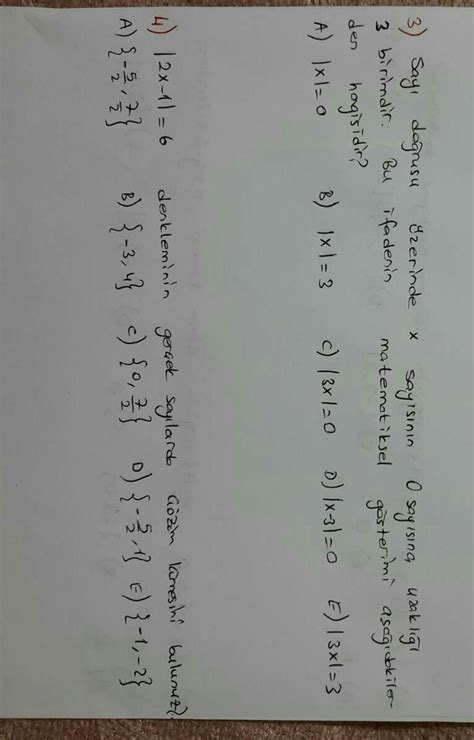 3) Sayı doğrusu üzerinde x sayısının 0 sayısına uzaklığı
3 birimdir. Bu ifadenin matematiksel gösterimi aşağıdakiler-
den hangisidir?
A) |x|=0 B) |x|=3 C) |3x|=0 D) |x-3|=0 E) |3x|=3
4) |2x-1|=6 denkleminin gerçek sayılarda çözüm kümesini bulunuz?
A) {-5/2, 7/2} B) {-3,4} C) {0, 7/2} D) {-5/2, 1} E) {-1,-2}